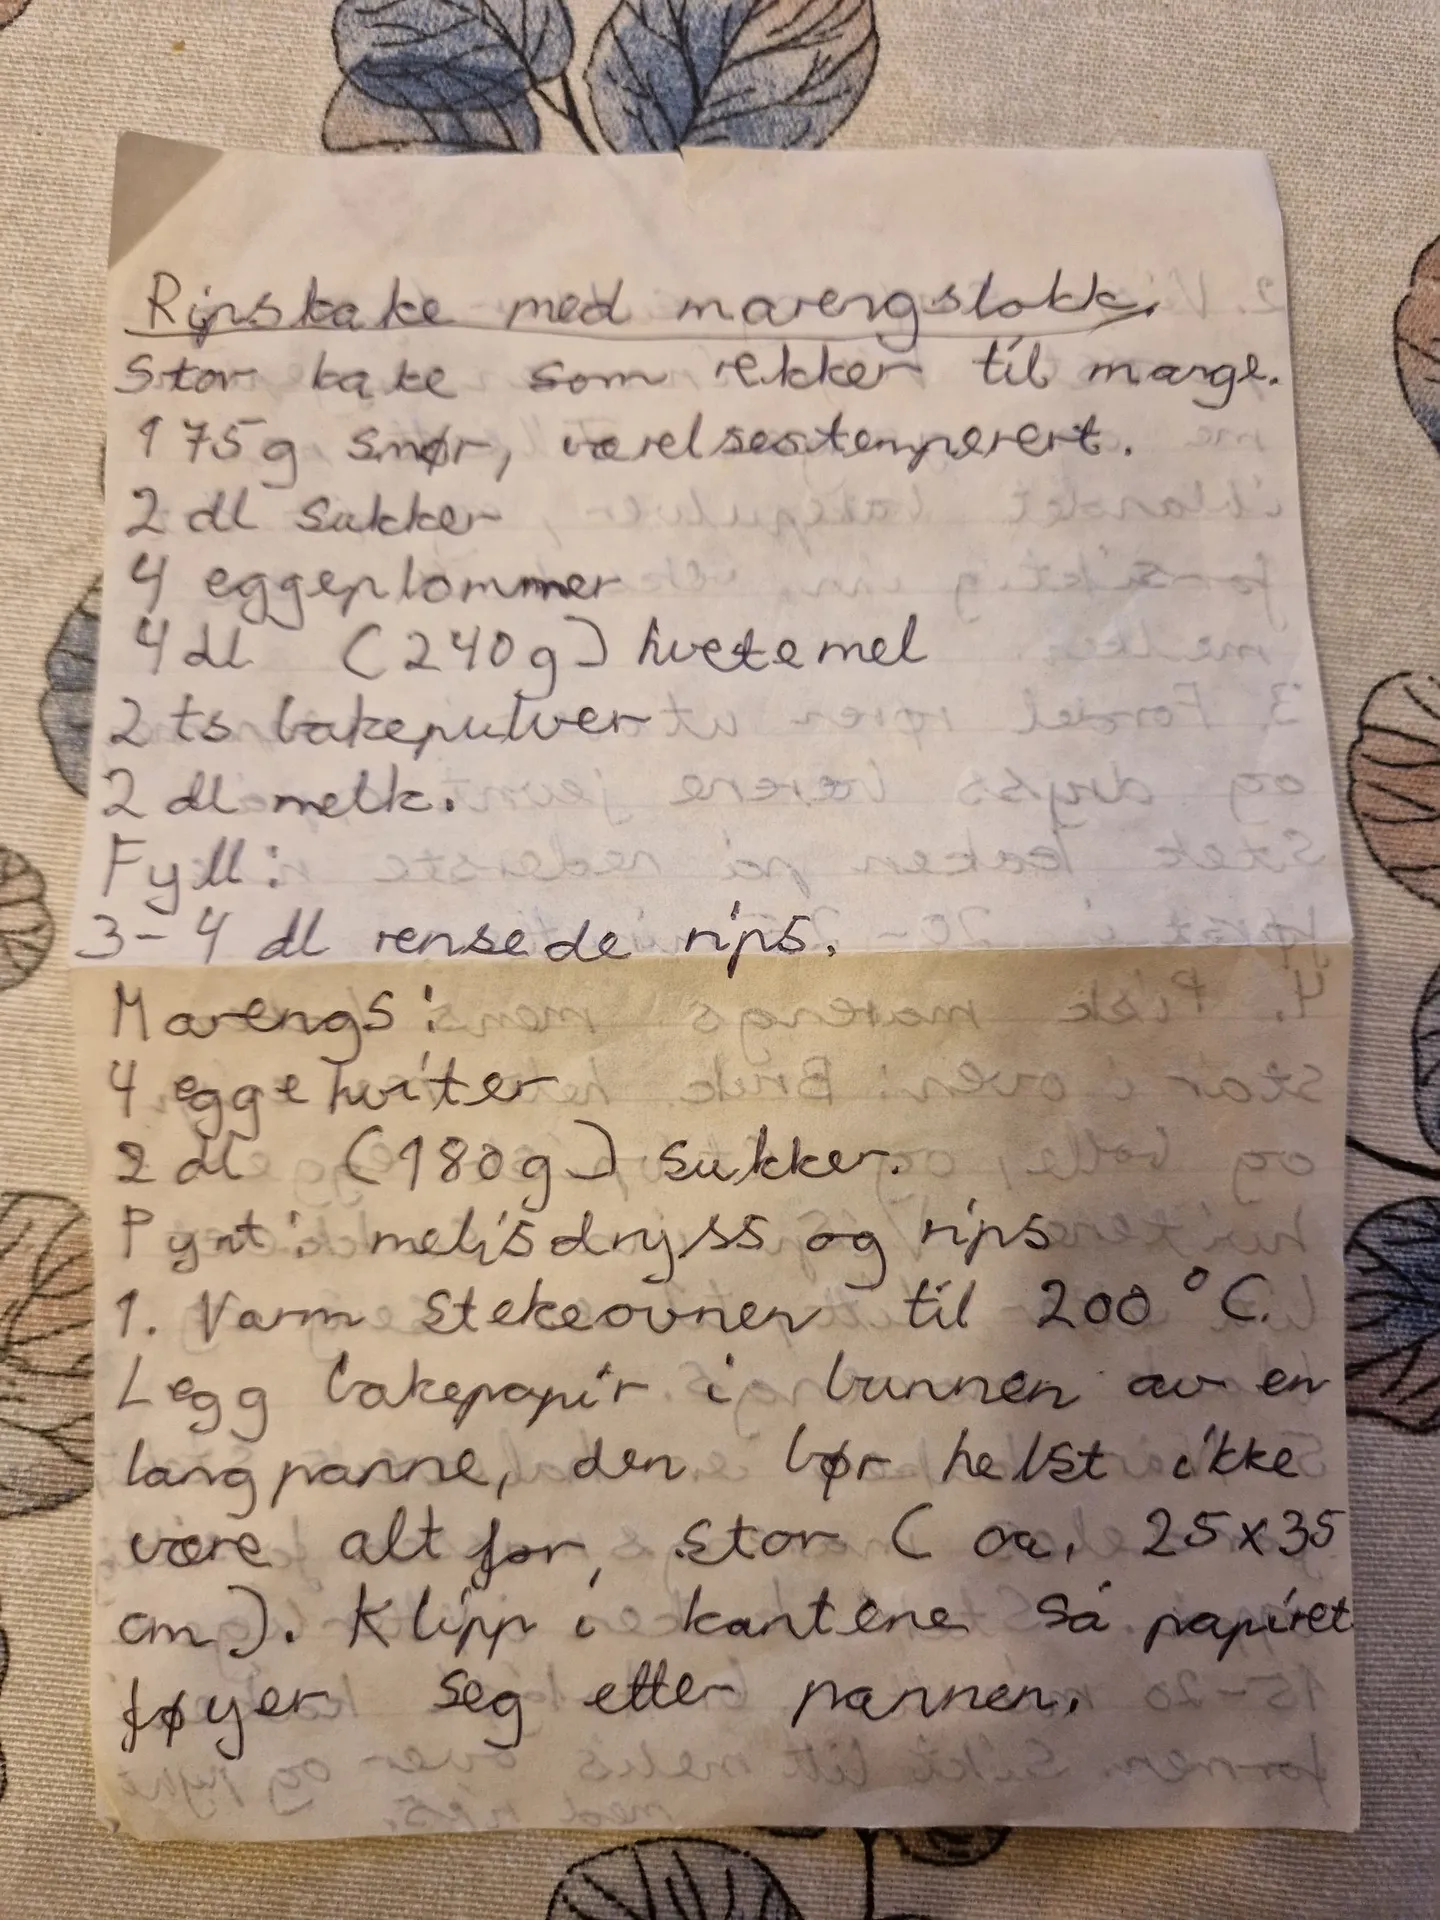 Ripskake med marengslokk.
Stor kake som rekker til mange.
175g smør, værelsestemperert.
2 dl sukker
4 eggeplommer
4 dl (240g) hvetemel
2 ts bakepulver
2 dl melk.
Fyll:
3-4 dl rensede rips.
Marengs:
4 eggehviter
2 dl (180g) sukker.
Pynt: melisdryss og rips
1. Varm stekeovnen til 200 °C.
Legg bakepapir i bunnen av en
langpanne, den bør helst ikke
være alt for stor (ca. 25x35
cm). Klipp i kantene så papiret
føyer seg etter pannen.